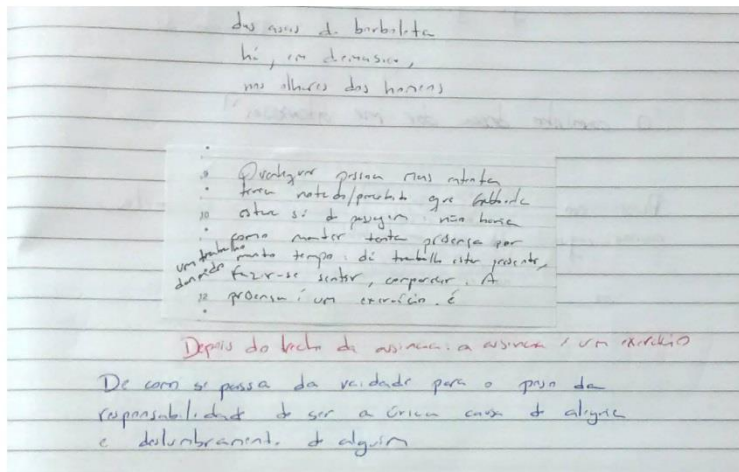 das asas da borboleta
há, em demasia,
nos olhares dos homens
Qualquer pessoa mais atenta
teria notado/percebido que
estava só de passagem. não havia
como manter tanta presença por
muito tempo. dá trabalho estar presente,
um trabalho danado
fazer-se sentir, comparecer. A
presença é um exercício. é
Depois do trecho da ausência: a ausência é um exercício
De como se passa da vaidade para o peso da
responsabilidade de ser a única causa de alegria
e deslumbramento de alguém